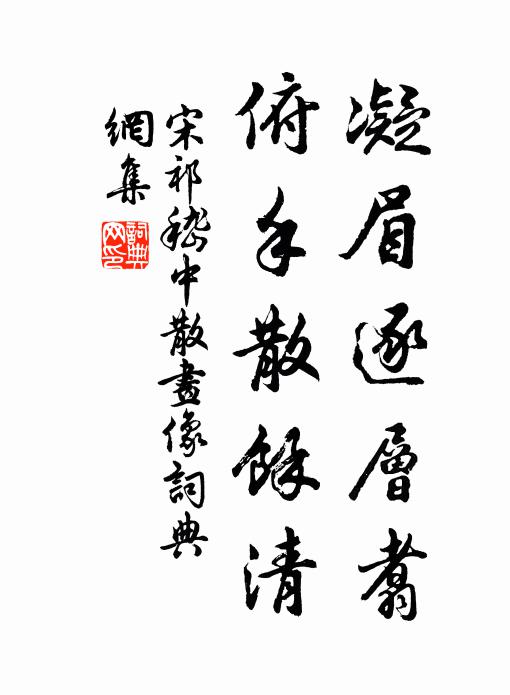 凝眉逐層翥
俯手散餘清
宋祁嵇中散畫像詞典
網集
詞典
網印